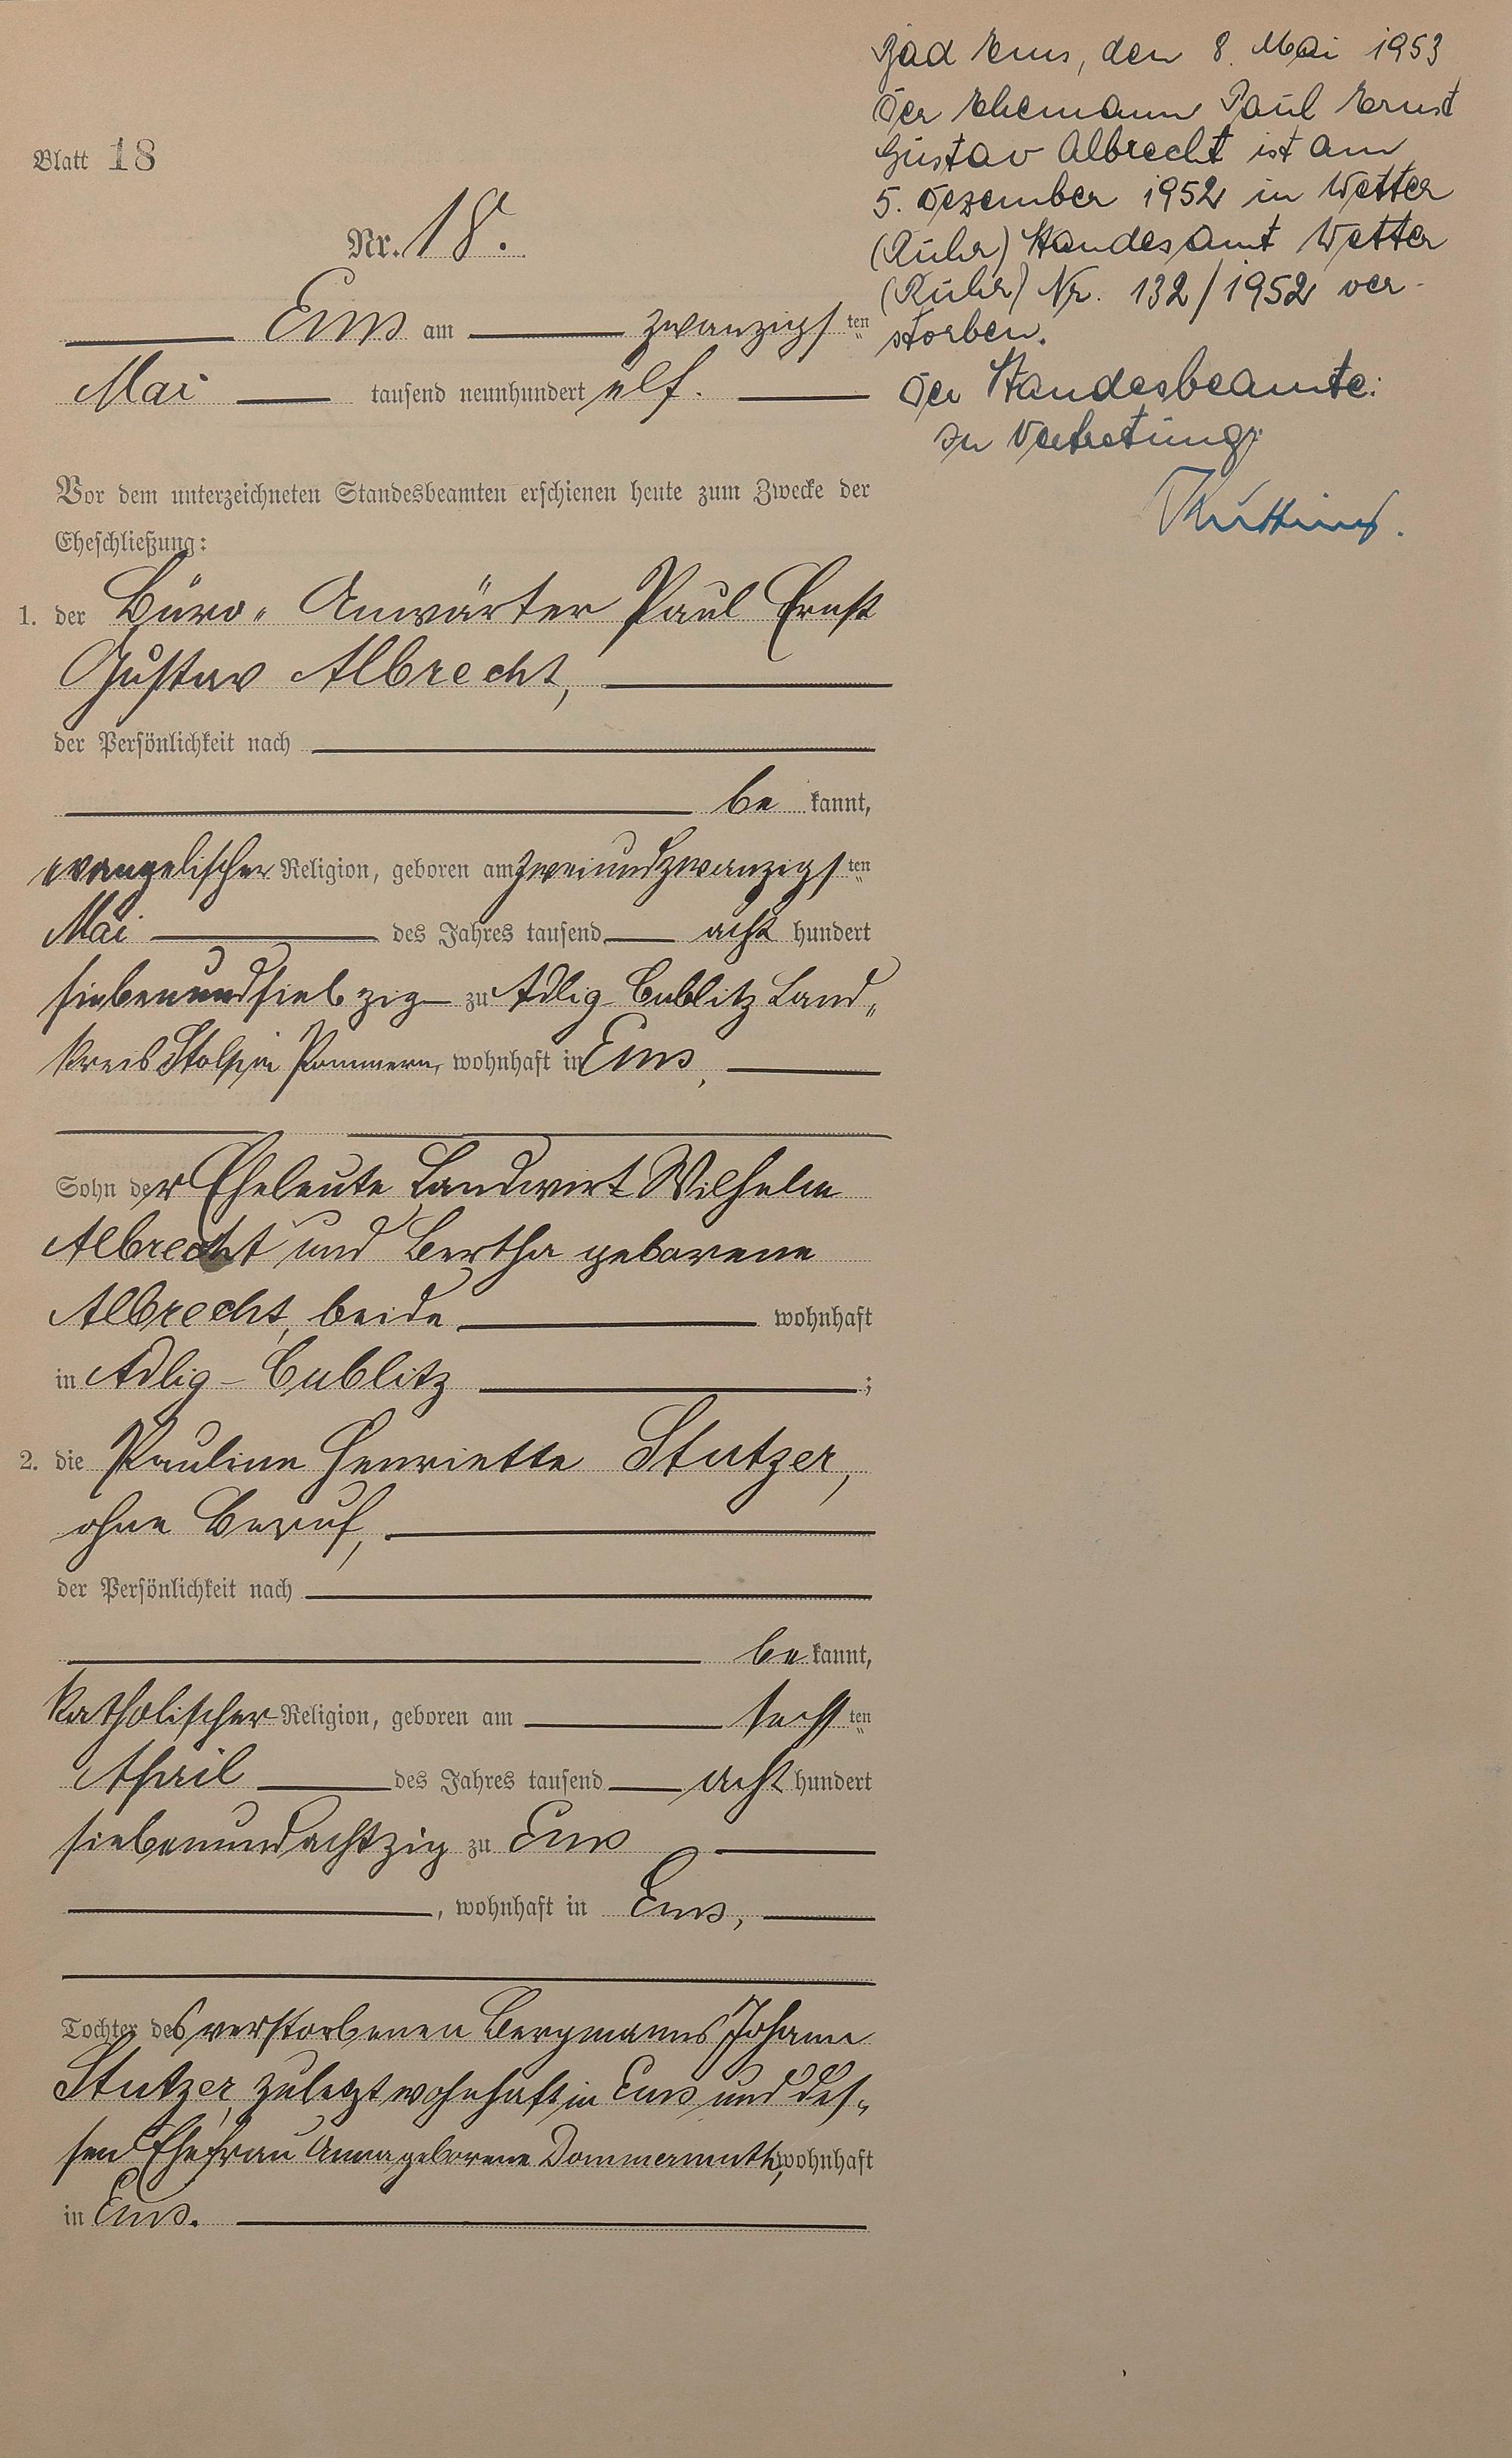 Blatt 18
Nr. 18.
Ems am zwanzigsten
Mai tausend neunhundert elf.
Vor dem unterzeichneten Standesbeamten erschienen heute zum Zwecke der
Eheschließung:
1. der Büro-Anwärter Paul Ernst
Gustav Albrecht,
der Persönlichkeit nach
bekannt,
evangelischer Religion, geboren am zweiundzwanzigsten
Mai des Jahres tausend acht hundert
siebenundsiebzig zu Adlig Cublitz Land-
kreis Stolp in Pommern, wohnhaft in Ems,
Sohn der Eheleute Landwirt Wilhelm
Albrecht und Bertha geborene
Albrecht, beide wohnhaft
in Adlig-Cublitz ;
2. die Pauline Henriette Stutzer,
ohne Beruf,
der Persönlichkeit nach
bekannt,
katholischer Religion, geboren am sechsten
April des Jahres tausend acht hundert
siebenundachtzig zu Ems
, wohnhaft in Ems,
Tochter des verstorbenen Bergmannes Johann
Stutzer, zuletzt wohnhaft in Ems und des-
sen Ehefrau Anna geborene Dommermuth, wohnhaft
in Ems.
Bad Ems, den 8. Mai 1953
Der Ehemann Paul Ernst
Gustav Albrecht ist am
5. Dezember 1952 in Wetter
(Ruhr) Standesamt Wetter
(Ruhr) Nr. 132/1952 ver-
storben.
Der Standesbeamte:
In Vertretung: